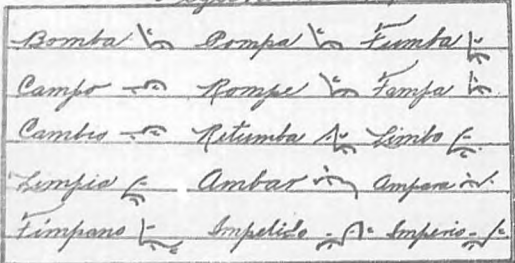 Bomba Pompa Tumba
Campo Rompe Tampa
Cambio Retumba Limbo
Limpio Ambar Ampara
Tímpano Impelido Imperio